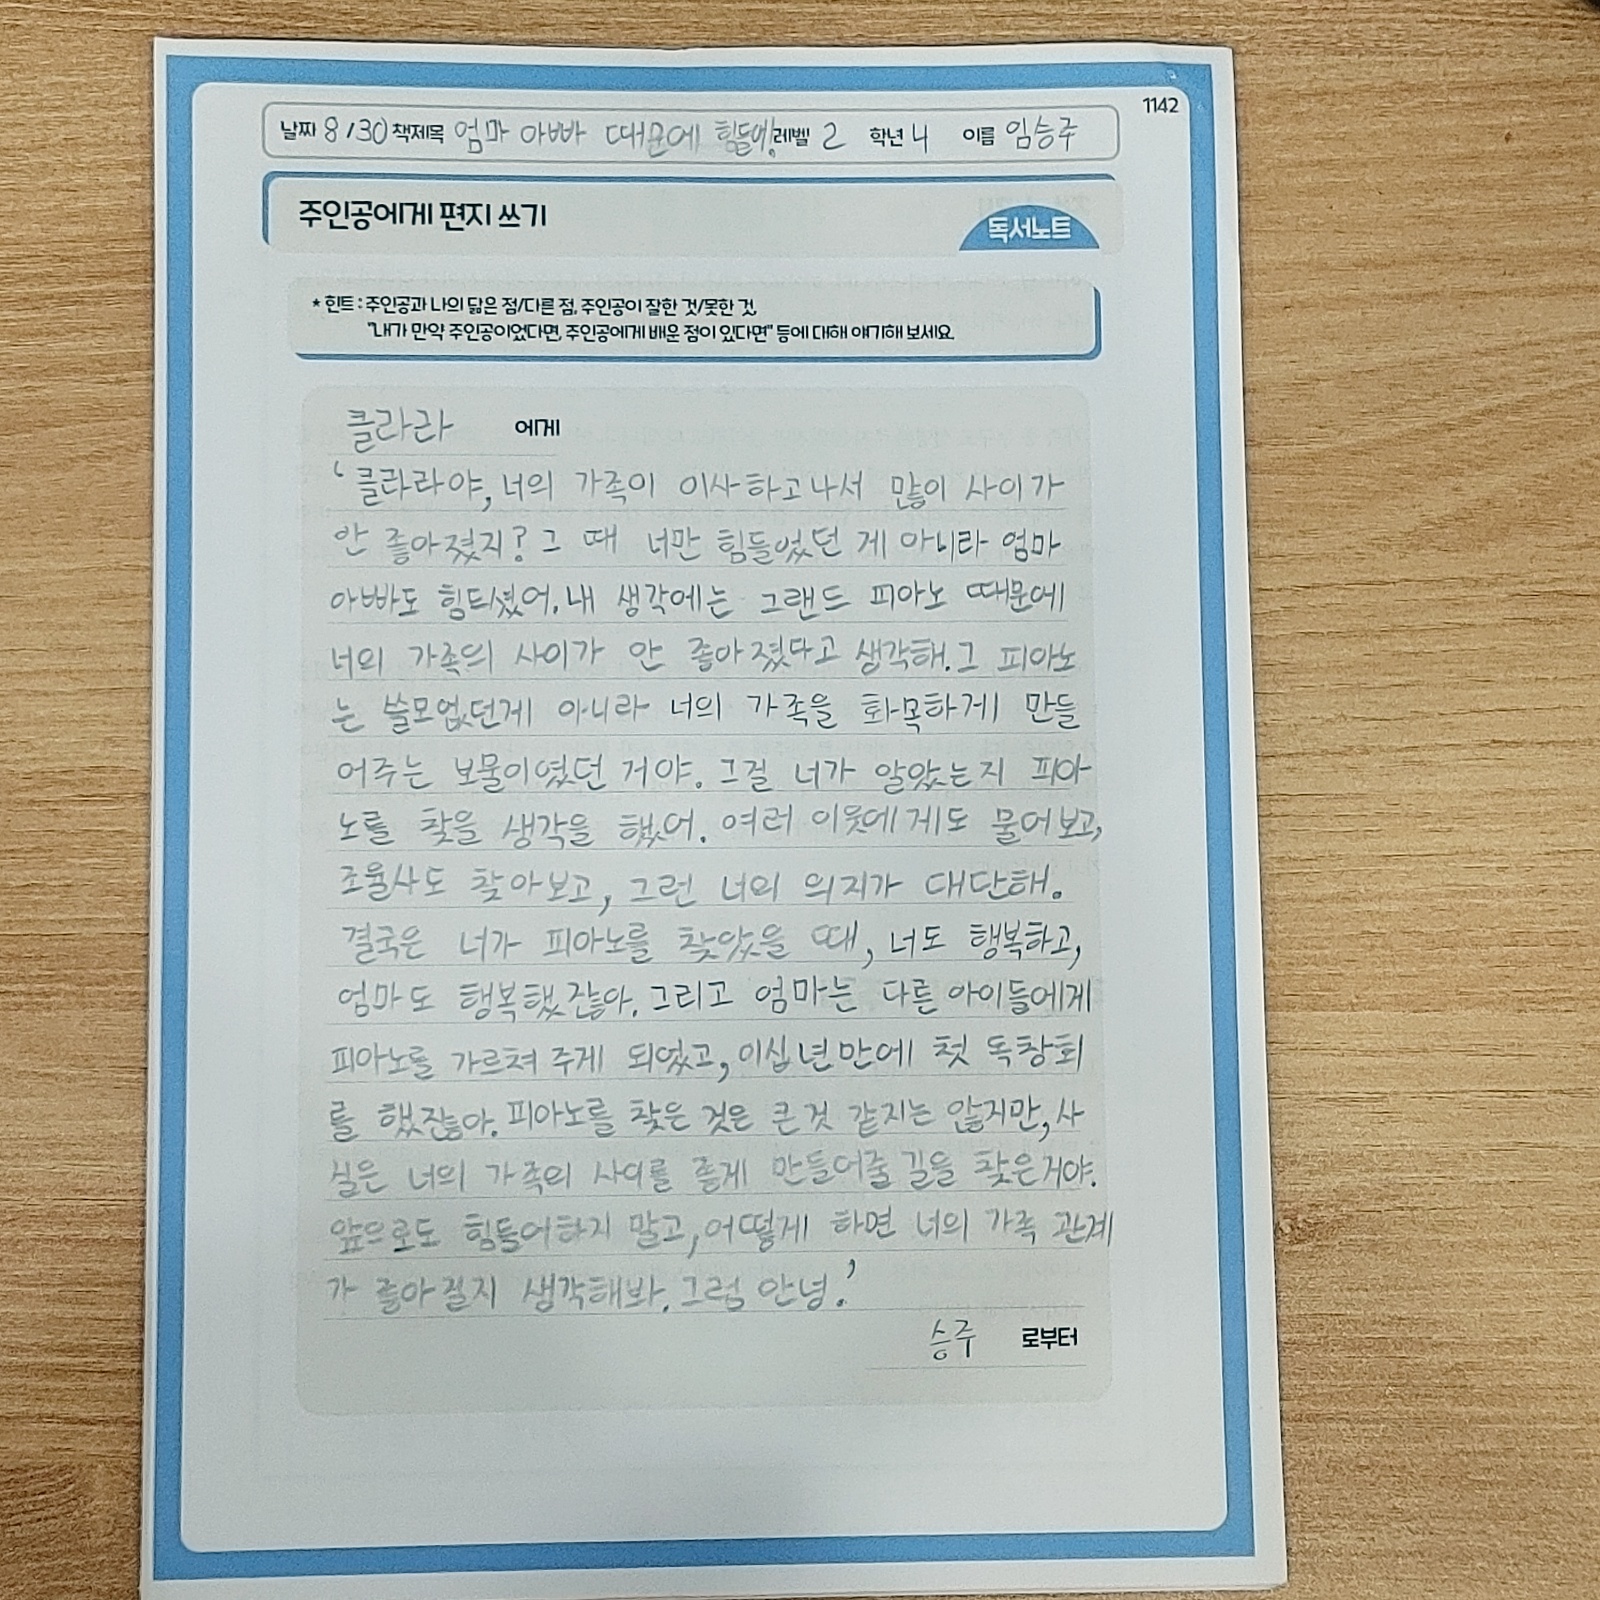 1142
날짜 8/30 책제목 엄마 아빠 때문에 힘들어! 레벨 2 학년 4 이름 임승주
주인공에게 편지 쓰기
독서노트
* 힌트 : 주인공과 나의 닮은 점/다른 점, 주인공이 잘한 것/못한 것,
"내가 만약 주인공이었다면, 주인공에게 배운 점이 있다면" 등에 대해 얘기해 보세요.
클라라 에게
‘클라라야, 너의 가족이 이사하고나서 많이 사이가
안 좋아졌지? 그 때 너만 힘들었던 게 아니라 엄마
아빠도 힘드셨어. 내 생각에는 그랜드 피아노 때문에
너의 가족의 사이가 안 좋아졌다고 생각해. 그 피아노
는 쓸모없던게 아니라 너의 가족을 화목하게 만들
어주는 보물이였던 거야. 그걸 너가 알았는지 피아
노를 찾을 생각을 했어. 여러 이웃에게도 물어보고,
조율사도 찾아보고, 그런 너의 의지가 대단해.
결국은 너가 피아노를 찾았을 때, 너도 행복하고,
엄마도 행복했잖아. 그리고 엄마는 다른 아이들에게
피아노를 가르쳐 주게 되었고, 이십년만에 첫 독창회
를 했잖아. 피아노를 찾은 것은 큰것 같지는 않지만, 사
실은 너의 가족의 사이를 좋게 만들어줄 길을 찾은거야.
앞으로도 힘들어하지 말고, 어떻게 하면 너의 가족 관계
가 좋아질지 생각해봐. 그럼 안녕.’
승주 로부터